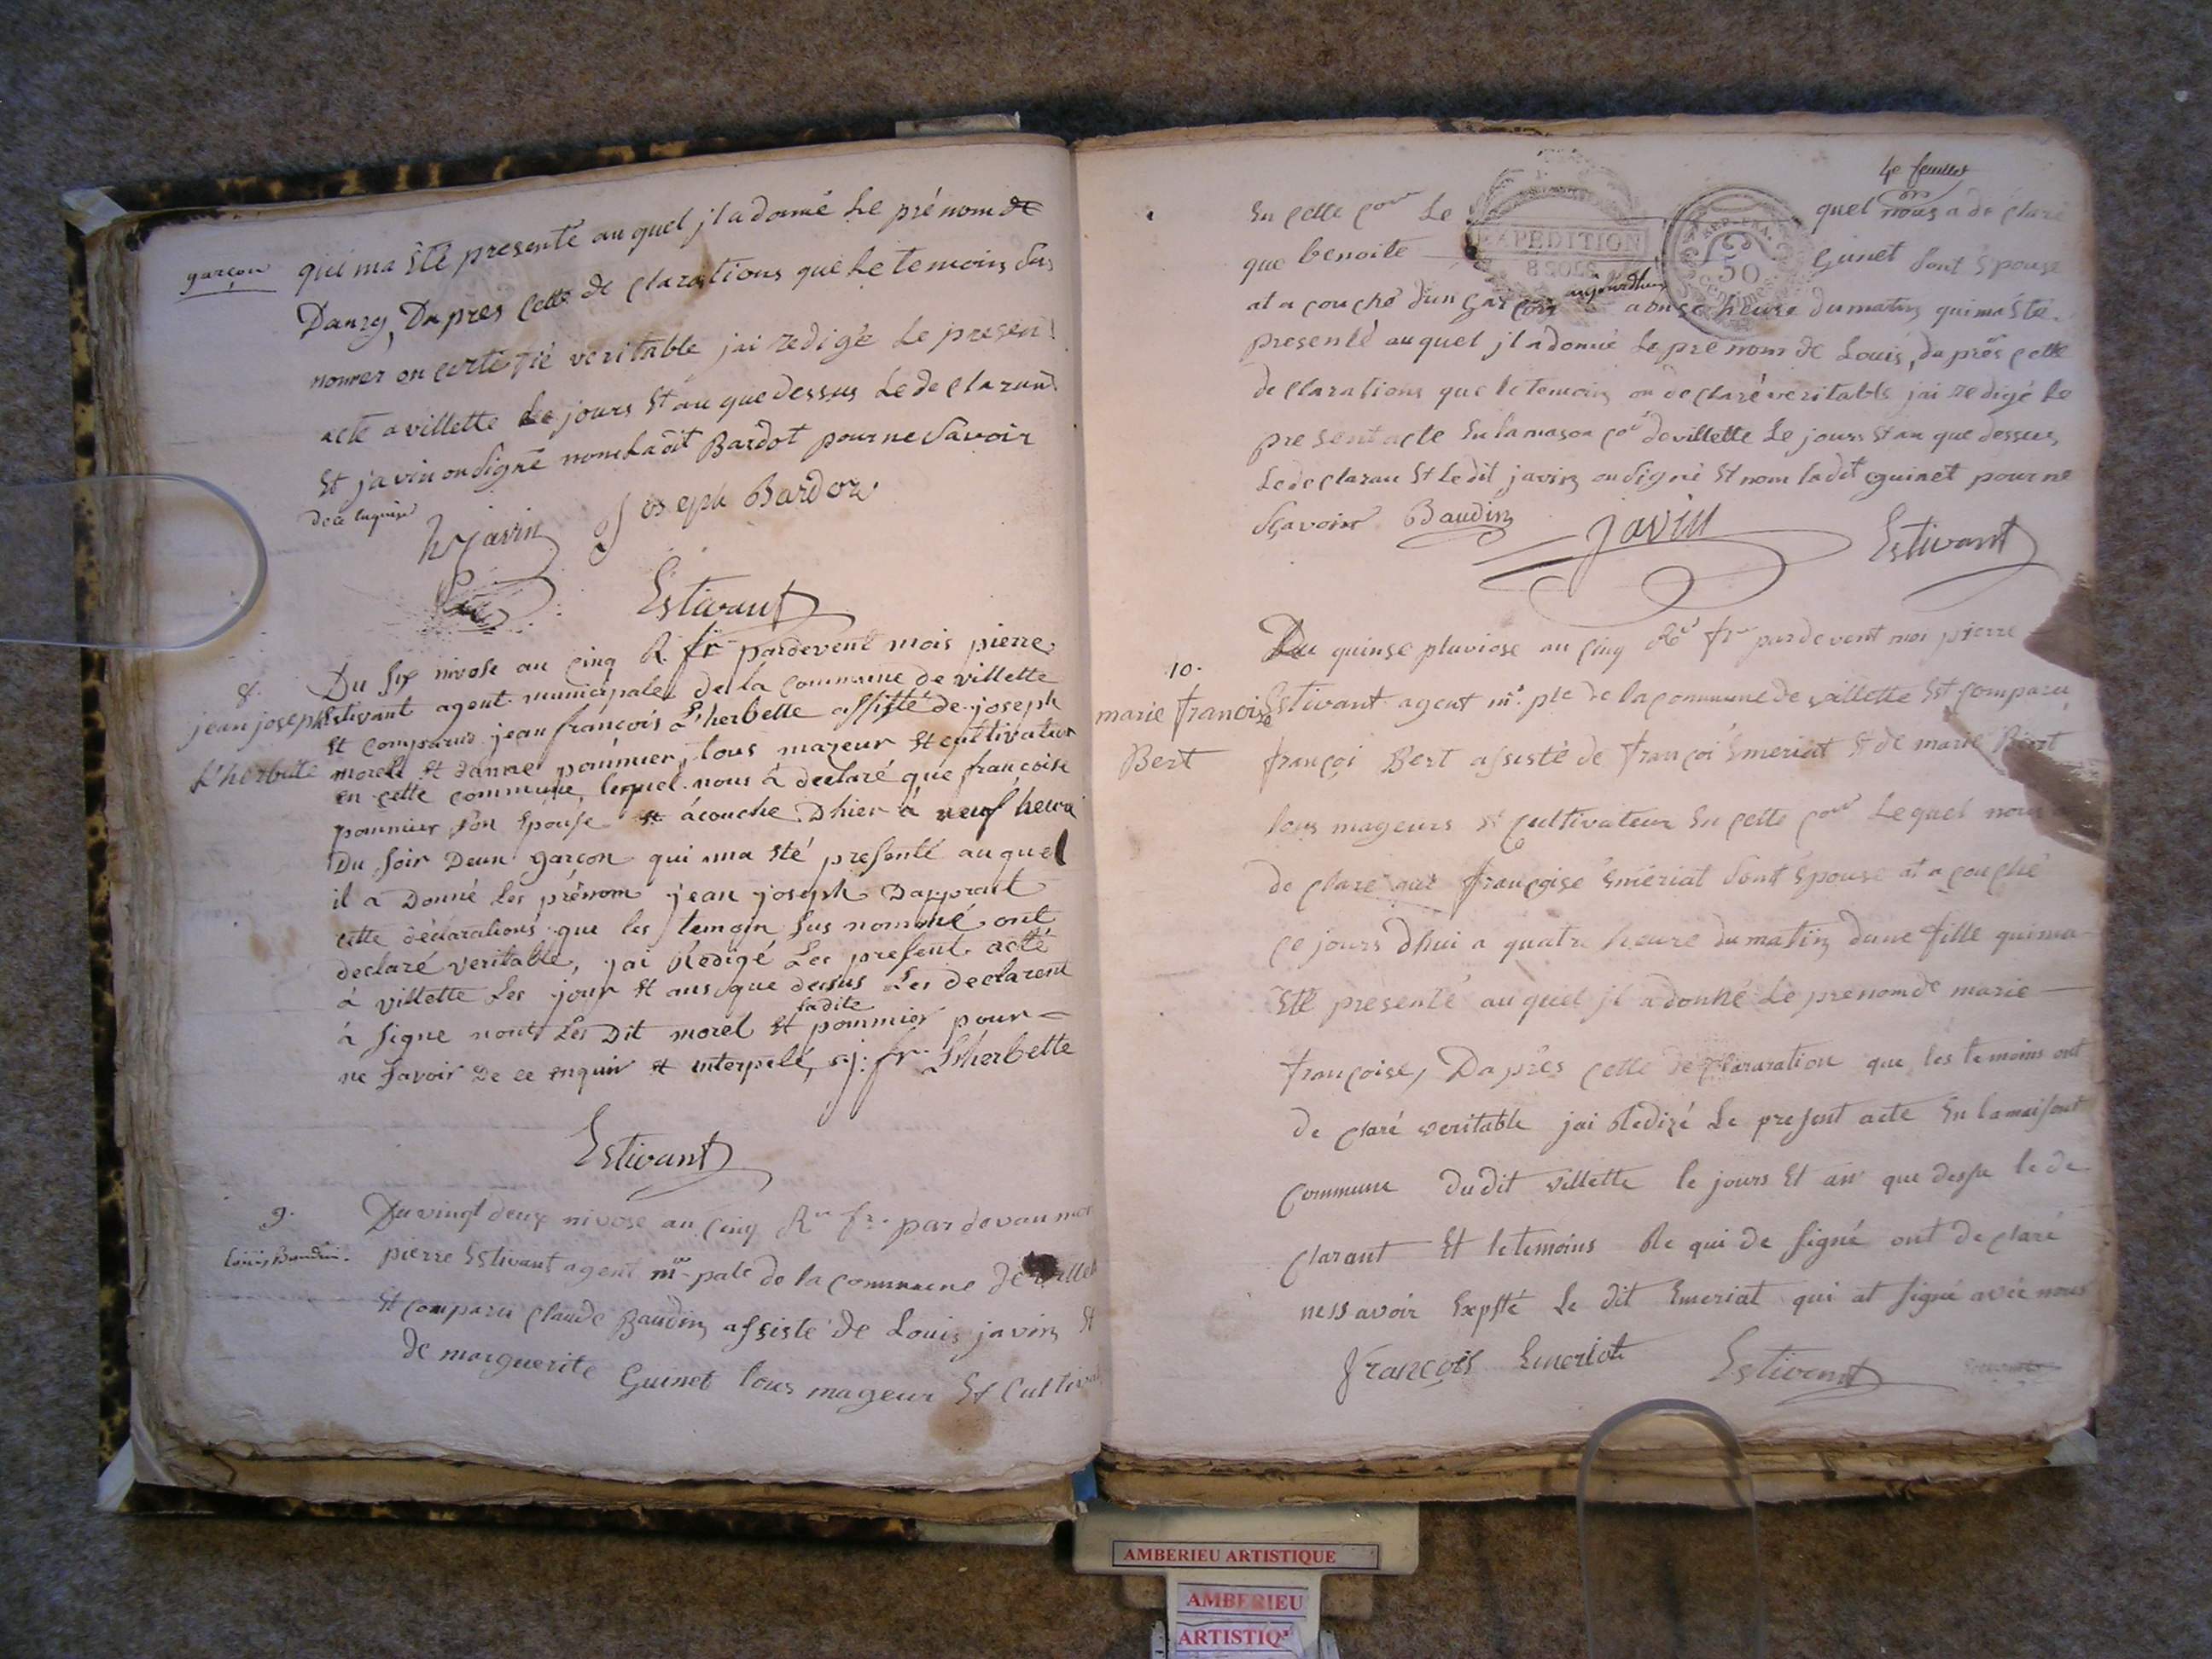 garçon
qui ma Été presenté au quel jl a donné Le prénom de
Danzy, Dapres Cette de clarations que Le temoins sus
nommer on certifié veritable jai redigé Le present
acte a villette Le jours Et an que dessus Le de clarant
Et javin on signé non Ladit Bardot pour ne Savoir
de ce enquise
javin Joseph Bardot
Estivant
8.
jean joseph
L'herbette
Du Six nivose an Cinq R. fr pardevent mois pierre
Estivant agent municipale de la commune de villette
Et comparus jean françois L'herbette assisté de joseph
morel Et danne pommier, tous majeur Et cultivateur
en cette commune, lequel nous à declaré que françoise
pommier son Epouse Et acouche Dhier à neuf heure
Du soir Deun garçon qui ma Eté presenté au quel
il a Donné Les prénom jean joseph Dapprait
cette déclarations que les temoin sus nommé ont
declaré veritable, jai Redigé Les present acté
à villette Les jour Et ans que dessus Les declarent
à signe nont Les Dit morel Et ladite pommier pour
ne savoir De ce enquir Et interpelé, sj: fr. L'herbette
Estivant
9.
Louis Baudin.
Du vingt deux nivose an Cinq Rue fr. par devan moi
pierre Estivant agent m pale de la commune de villette
Et comparu Claude Baudin assisté de Louis javin Et
de marguerite Guinet tous mageur Et Cultiva
4e feuillet
En Cette Com Le quel nous a de claré
RAPEDITION
8 SOLS
REP. FRA.
50
centimes
que benoite Guinet sont Epouse
at a couché dun Garçon aujourdhuy a onse heure du matin qui ma Eté
presenté au quel jl a donné Le pre nom de Louis, da près Cette
de clarations que le temoin on de claré veritable jai redigé Le
present acte En la mason Com de villette Le jours Et an que dessus
Le de claran Et Le dit javin on signé Et nom ladit guinet pour ne
Sçavoir Baudin javin Estivant
10.
marie françoise
Bert
Du quinse pluviose an Cinq Rue fr par devent moi pierre
Estivant agent m. ple de la commune de villette Est comparu
françoi Bert assisté de françoi Emeriat Et de marie
tous mageurs Et Cultivateur En Cette Com Lequel nous
de clare que françoise Emeriat sont Epouse at a couché
ce jours dhui a quatre heure du matin dune fille qui ma
Eté presenté au quel jl a donné Le prenom de marie
françoise, Dapres Cette de clararation que les temoins ont
de claré veritable jai Redigé Le present acte En la maisont
Commune dudit villette le jours Et an que dessu le de
clarant Et le temoins Re qui de signé ont de claré
ness avoir Expsté Le dit Emeriat qui at signé avec nous
françois Emeriat Estivant
AMBERIEU ARTISTIQUE
AMBERIEU
ARTISTIQ